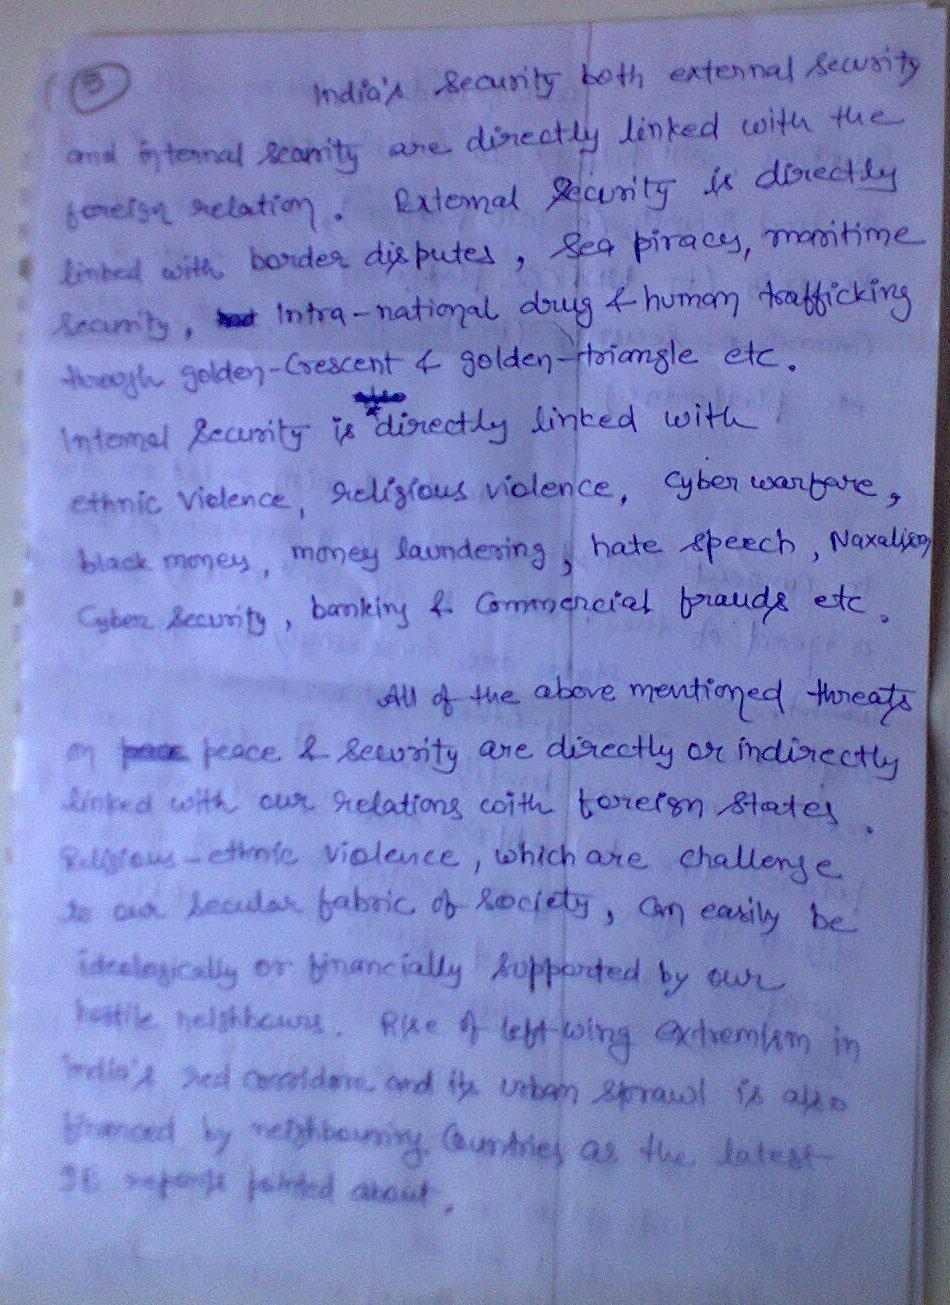 5
India's Security both external security
and internal security are directly linked with the
foreign relation. External Security is directly
linked with border disputes, Sea piracy, maritime
security, Intra-national drug & human trafficking
through golden-Crescent & golden-triangle etc.
Internal Security is directly linked with
ethnic violence, religious violence, Cyber warfare,
black money, money laundering, hate speech, Naxalism
Cyber Security, banking & Commercial frauds etc.
All of the above mentioned threats
on peace & Security are directly or indirectly
linked with our relations with foreign States.
Religious-ethnic violence, which are challenge
to our secular fabric of society, can easily be
ideologically or financially supported by our
hostile neighbours. Rise of left wing extremism in
India's red and its urban sprawl is also
financed by neighbouring Countries as the latest
IB reports pointed about.